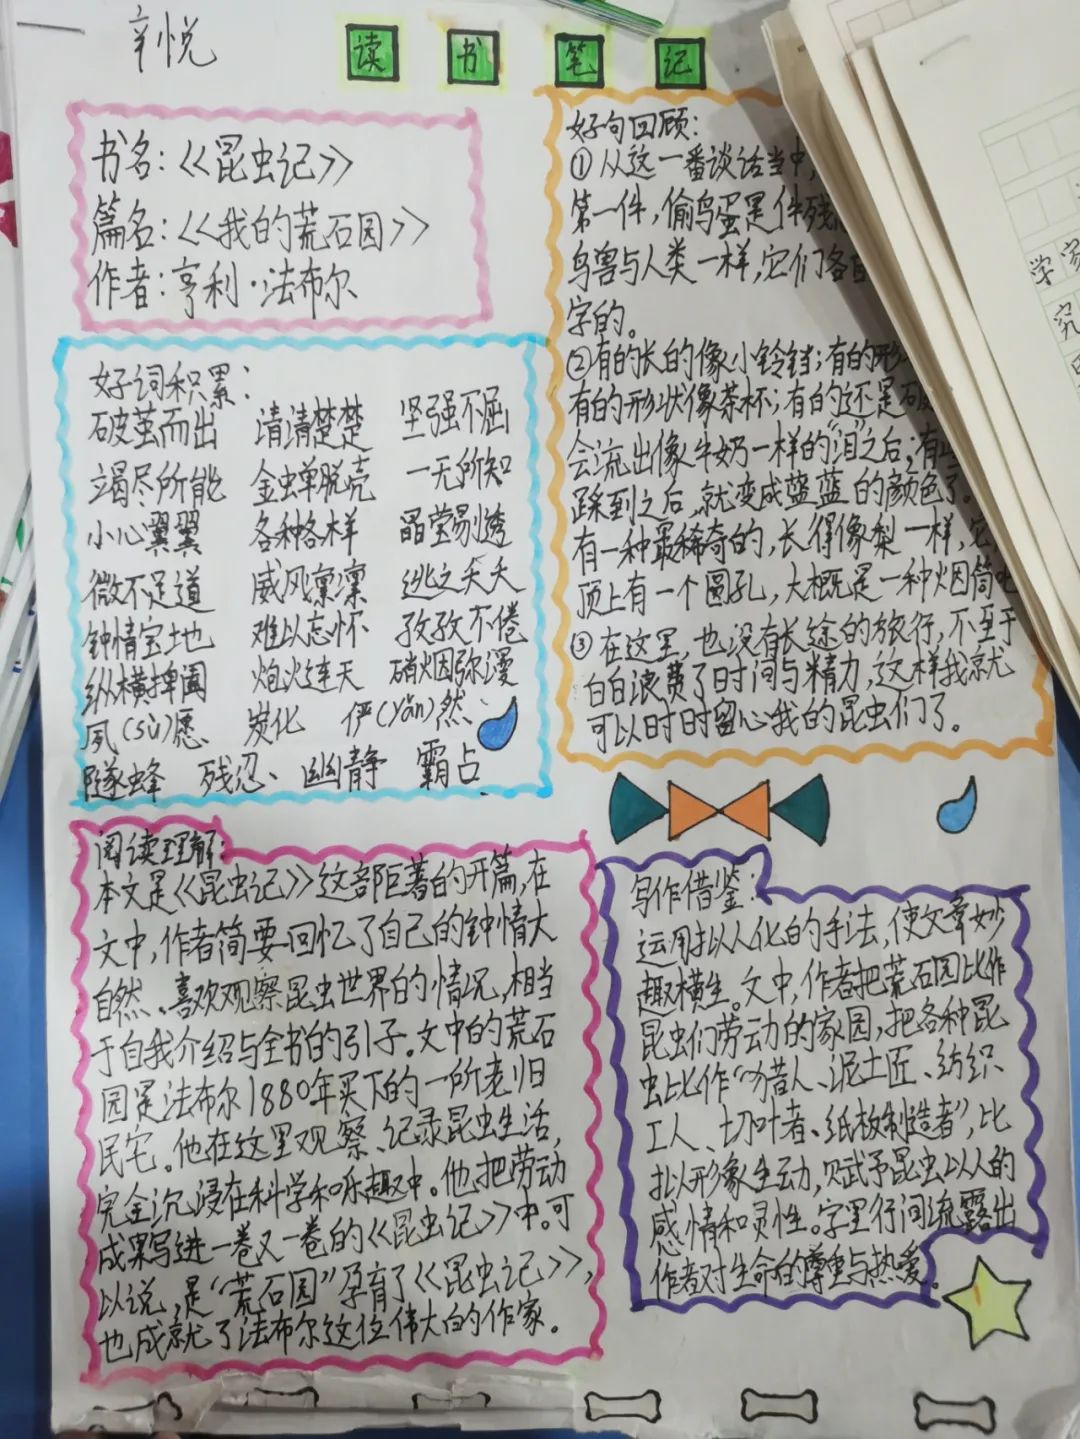 辛悦
读书笔记
书名:《昆虫记》
篇名:《我的荒石园》
作者:亨利·法布尔
好词积累:
破茧而出 清清楚楚 坚强不屈
竭尽所能 金蝉脱壳 一无所知
小心翼翼 各种各样 晶莹剔透
微不足道 威风凛凛 逃之夭夭
钟情宝地 难以忘怀 孜孜不倦
纵横捭阖 炮火连天 硝烟弥漫
夙(sù)愿 炭化 俨(yǎn)然、
隧蜂 残忍、幽静 霸占
好句回顾:
①从这一番谈话当中,
第一件,偷鸟蛋是件残
鸟兽与人类一样,它们各自
字的。
②有的长的像小铃铛;有的形
有的形状像茶杯;有的还是破
会流出像牛奶一样的“泪”之后;有
踩到之后,就变成蓝蓝的颜色了。
有一种最稀奇的,长得像梨一样,它
顶上有一个圆孔,大概是一种烟筒吧
③在这里,也没有长途的旅行,不至于
白白浪费了时间与精力,这样我就
可以时时留心我的昆虫们了。
阅读理解:
本文是《昆虫记》这部巨著的开篇,在
文中,作者简要回忆了自己的钟情大
自然、喜欢观察昆虫世界的情况,相当
于自我介绍与全书的引子。文中的荒石
园是法布尔1880年买下的一所老旧
民宅。他在这里观察、记录昆虫生活,
完全沉浸在科学和乐趣中。他把劳动
成果写进一卷又一卷的《昆虫记》中。可
以说,是“荒石园”孕育了《昆虫记》,
也成就了法布尔这位伟大的作家。
写作借鉴:
运用拟人化的手法,使文章妙
趣横生。文中,作者把荒石园比作
昆虫们劳动的家园,把各种昆
虫比作“猎人、泥土匠、纺织
工人、切叶者、纸板制造者”,比
拟形象生动,赋予昆虫以人的
感情和灵性。字里行间流露出
作者对生命的尊重与热爱。
学家
究